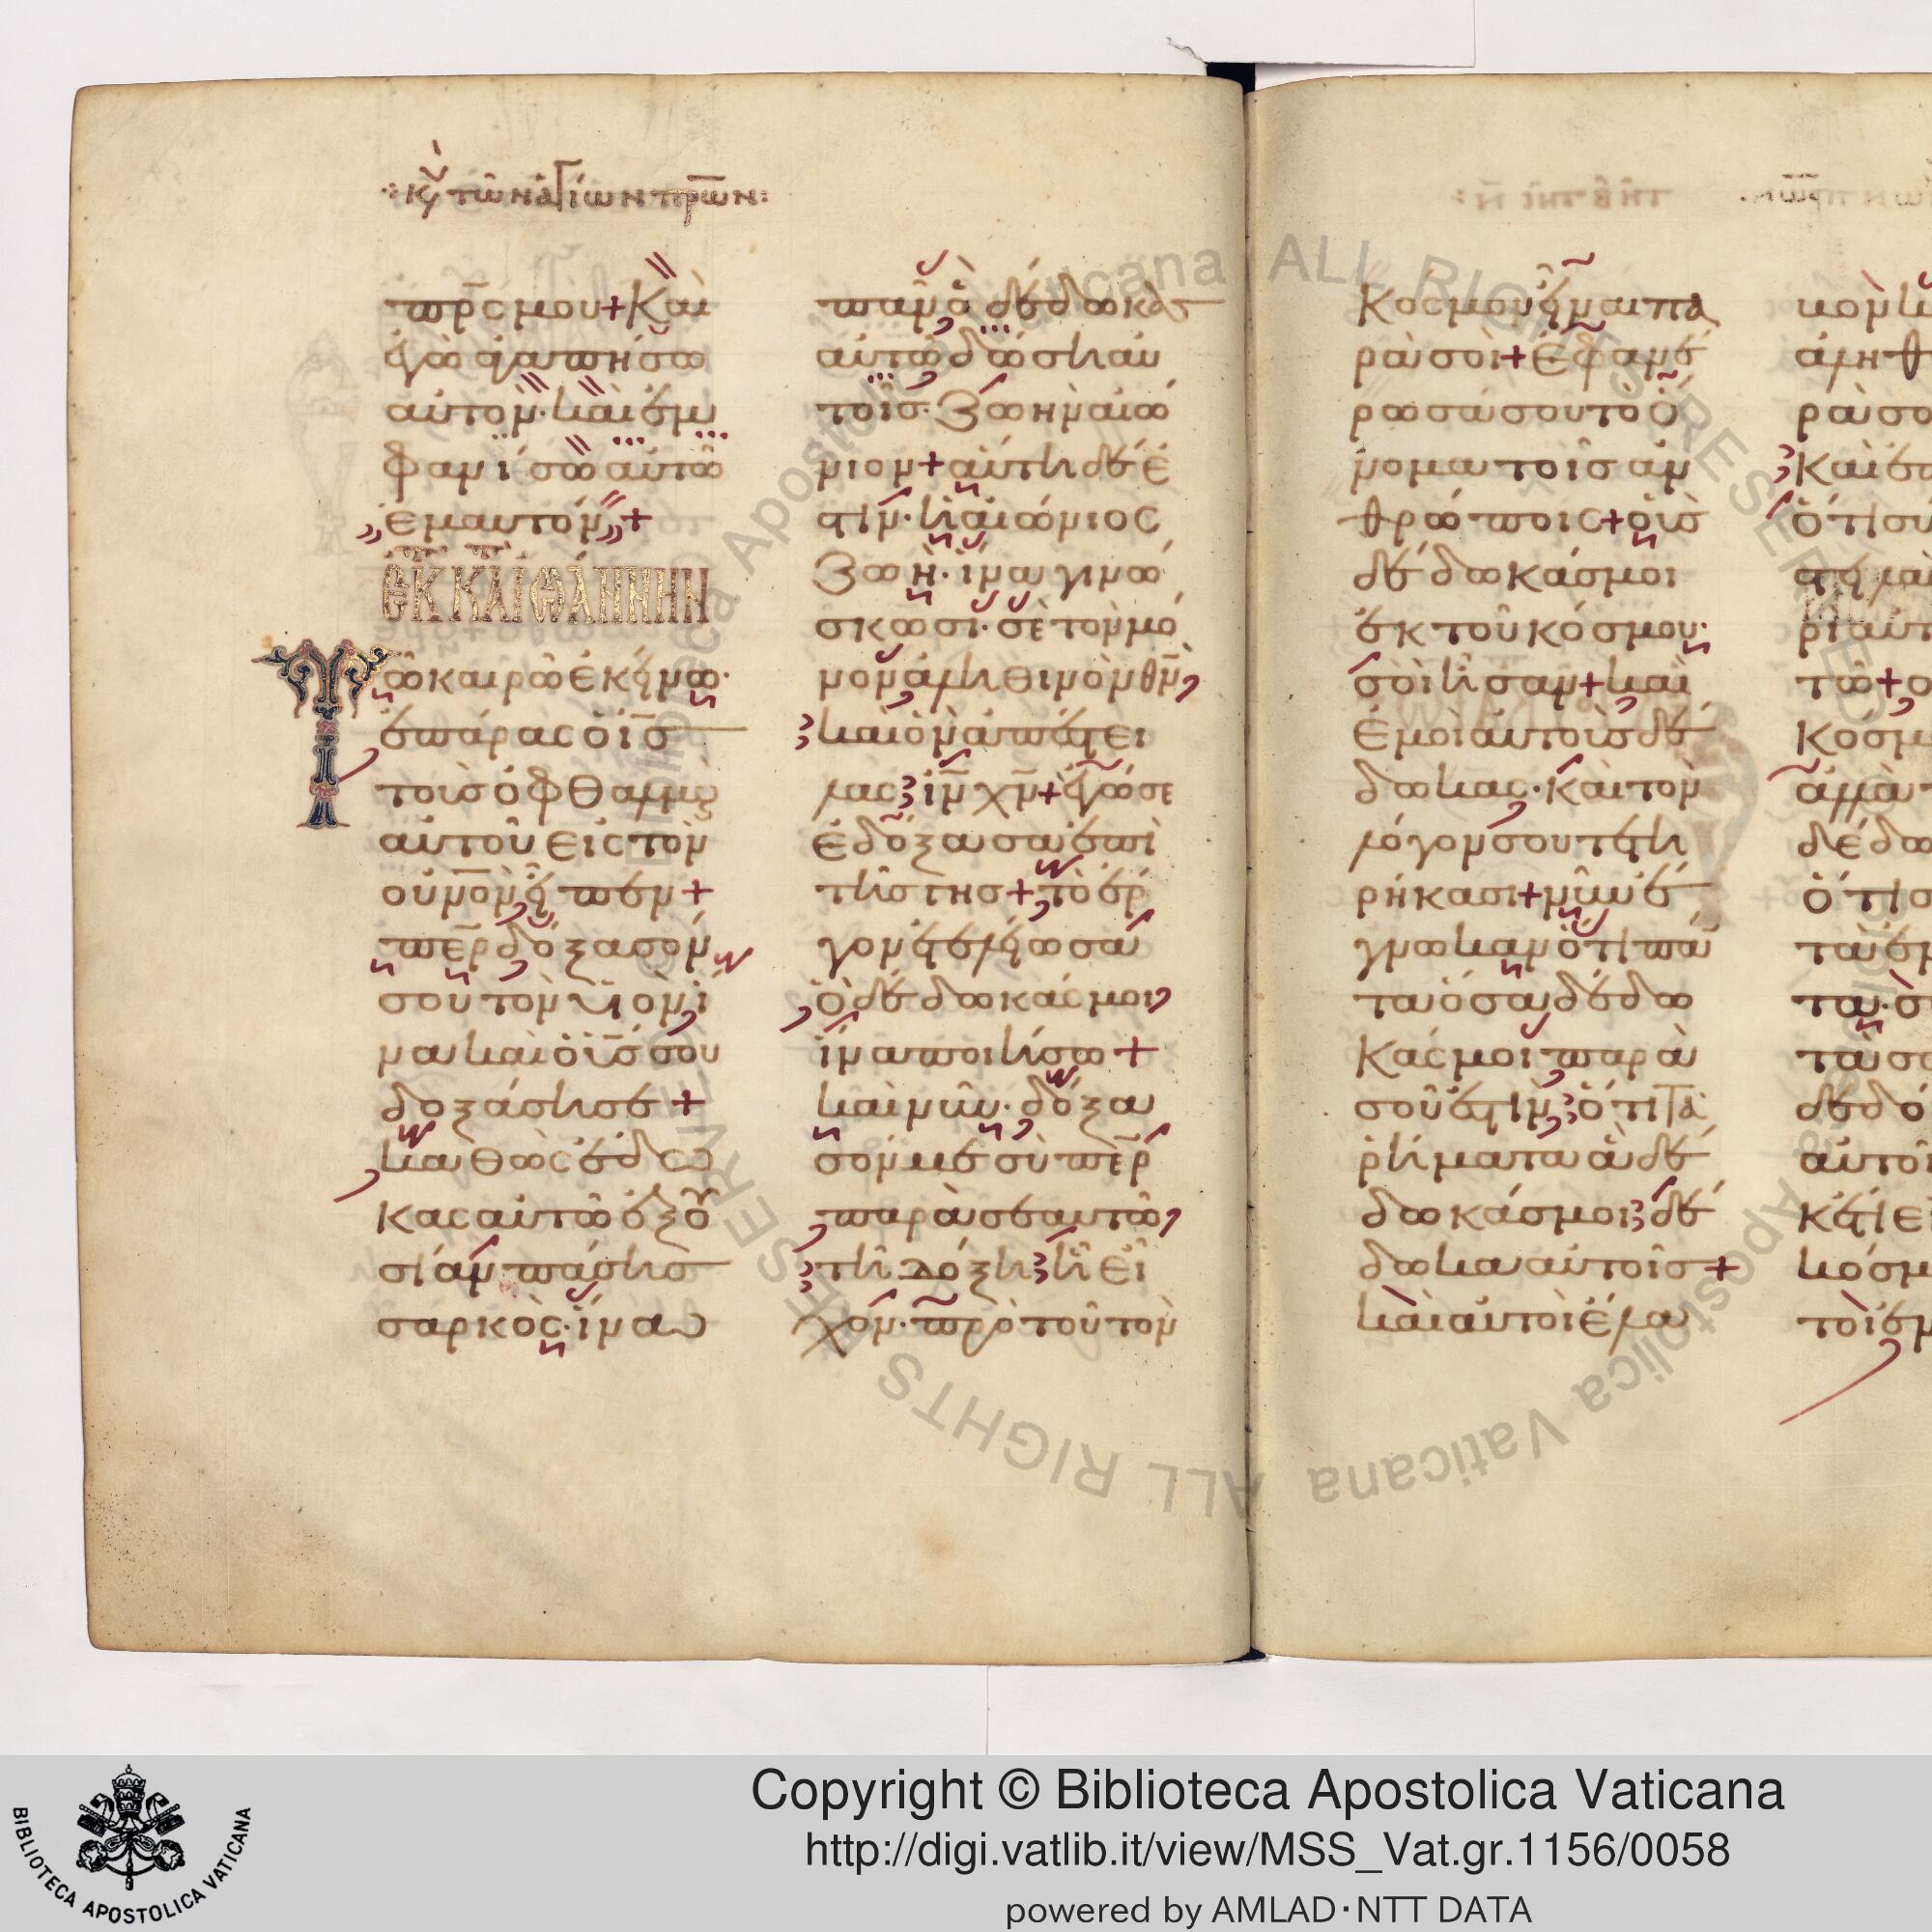 κυ τῶν ἁγίων πρων:
πρς μου + Καὶ
ἐγὼ ἀγαπήσω
αὐτόν· καὶ ἐμ
φανίσω αὐτῶ
ἐμαυτόν +
ΕΚ Κ ΙΩΑΝΝΗΝ
Τῶ καιρῶ ἐκείνω·
ἐπάρας ὁ ις
τοὺς ὀφθαλμοὺς
αὐτοῦ εἰς τὸν
ουνὸν εἶπεν +
περ δόξασόν
σου τὸν υἱὸν ἵ
να καὶ ὁ υἱς σου
δοξάση σε +
καθὼς ἔδω
κας αὐτῶ ἐξου
σίαν πάσης
σαρκὸς· ἵνα
πᾶν ὃ δέδωκας
αὐτῶ δώση αὐ
τοῖς· ζωὴν αἰώ
νιον + αὕτη δέ ἐ
στιν· ἡ αἰώνιος
ζωὴ· ἵνα γινώ
σκωσι· σὲ τὸν μό
νον ἀληθινὸν θν
καὶ ὃν ἀπέστει
λας ιν χν + ἐγώ σε
ἐδόξασα ἐπὶ
τῆς γῆς + τὸ ἔρ
γον ἐτελείωσα
ὃ δέδωκάς μοι
ἵνα ποιήσω +
καὶ νῦν· δόξα
σόν με σὺ περ
παρὰ σεαυτῶ
τῆ δόξη ἧ εἶ
χον· πρὸ τοῦ τὸν
κόσμον εἶναι πα
ρὰ σοὶ + Ἐφανέ
ρωσά σου τὸ ὄ
νομα τοῖς ἀν
θρώποις + οὓς
δέδωκάς μοι
ἐκ τοῦ κόσμου·
σοὶ ἦσαν + καὶ
ἐμοὶ αὐτοὺς δέ
δωκας· καὶ τὸν
λόγον σου τετη
ρήκασι + νῦν ἔ
γνωκαν ὅτι πάν
τα ὅσα δέδω
κάς μοι παρὰ
σοῦ ἐστιν· ὅτι τὰ
ῥήματα ἃ δέ
δωκάς μοι· δέ
δωκα αὐτοῖς +
καὶ αὐτοὶ ἔλα
Copyright © Biblioteca Apostolica Vaticana
http://digi.vatlib.it/view/MSS_Vat.gr.1156/0058
powered by AMLAD·NTT DATA
BIBLIOTECA APOSTOLICA VATICANA